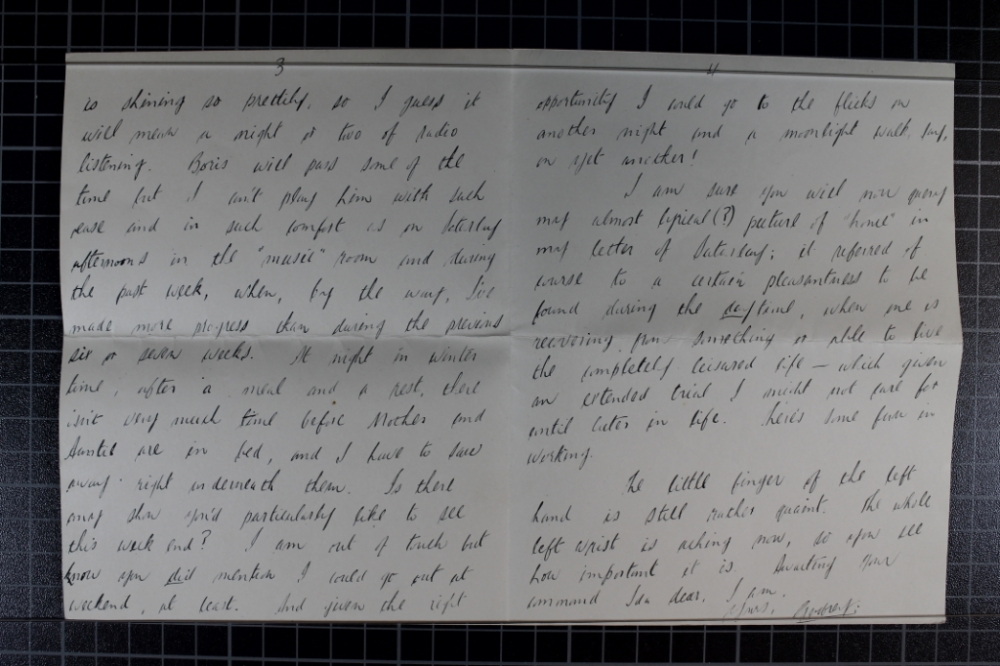 3
is shining so prettily, so I guess it
will mean a night or two of radio
listening. Boris will pass some of the
time but I can't play him with such
ease and in such comfort as on Saturday
afternoons in the "music" room and during
the past week, when, by the way, I've
made more progress than during the previous
six or seven weeks. At night in winter
time, after a meal and a rest, there
isn't very much time before Mother and
Auntie are in bed, and I have to saw
away right underneath them. Is there
any show you'd particularly like to see
this week end? I am out of touch but
know you did mention I could go out at
weekend, at least. And given the right
4
opportunity I could go to the flicks on
another night and a moonlight walk, say,
on yet another!
I am sure you will now query
my almost lyrical (?) picture of "home" in
my letter of Saturday; it referred of
course to a certain pleasantness to be
found during the daytime, when one is
recovering from something or able to live
the completely leisured life — which given
an extended trial I might not care for
until later in life. There's some fun in
working.
The little finger of the left
hand is still rather quaint. The whole
left wrist is aching now, so you see
how important it is. Awaiting your
command Ida dear, I am,
Yours,